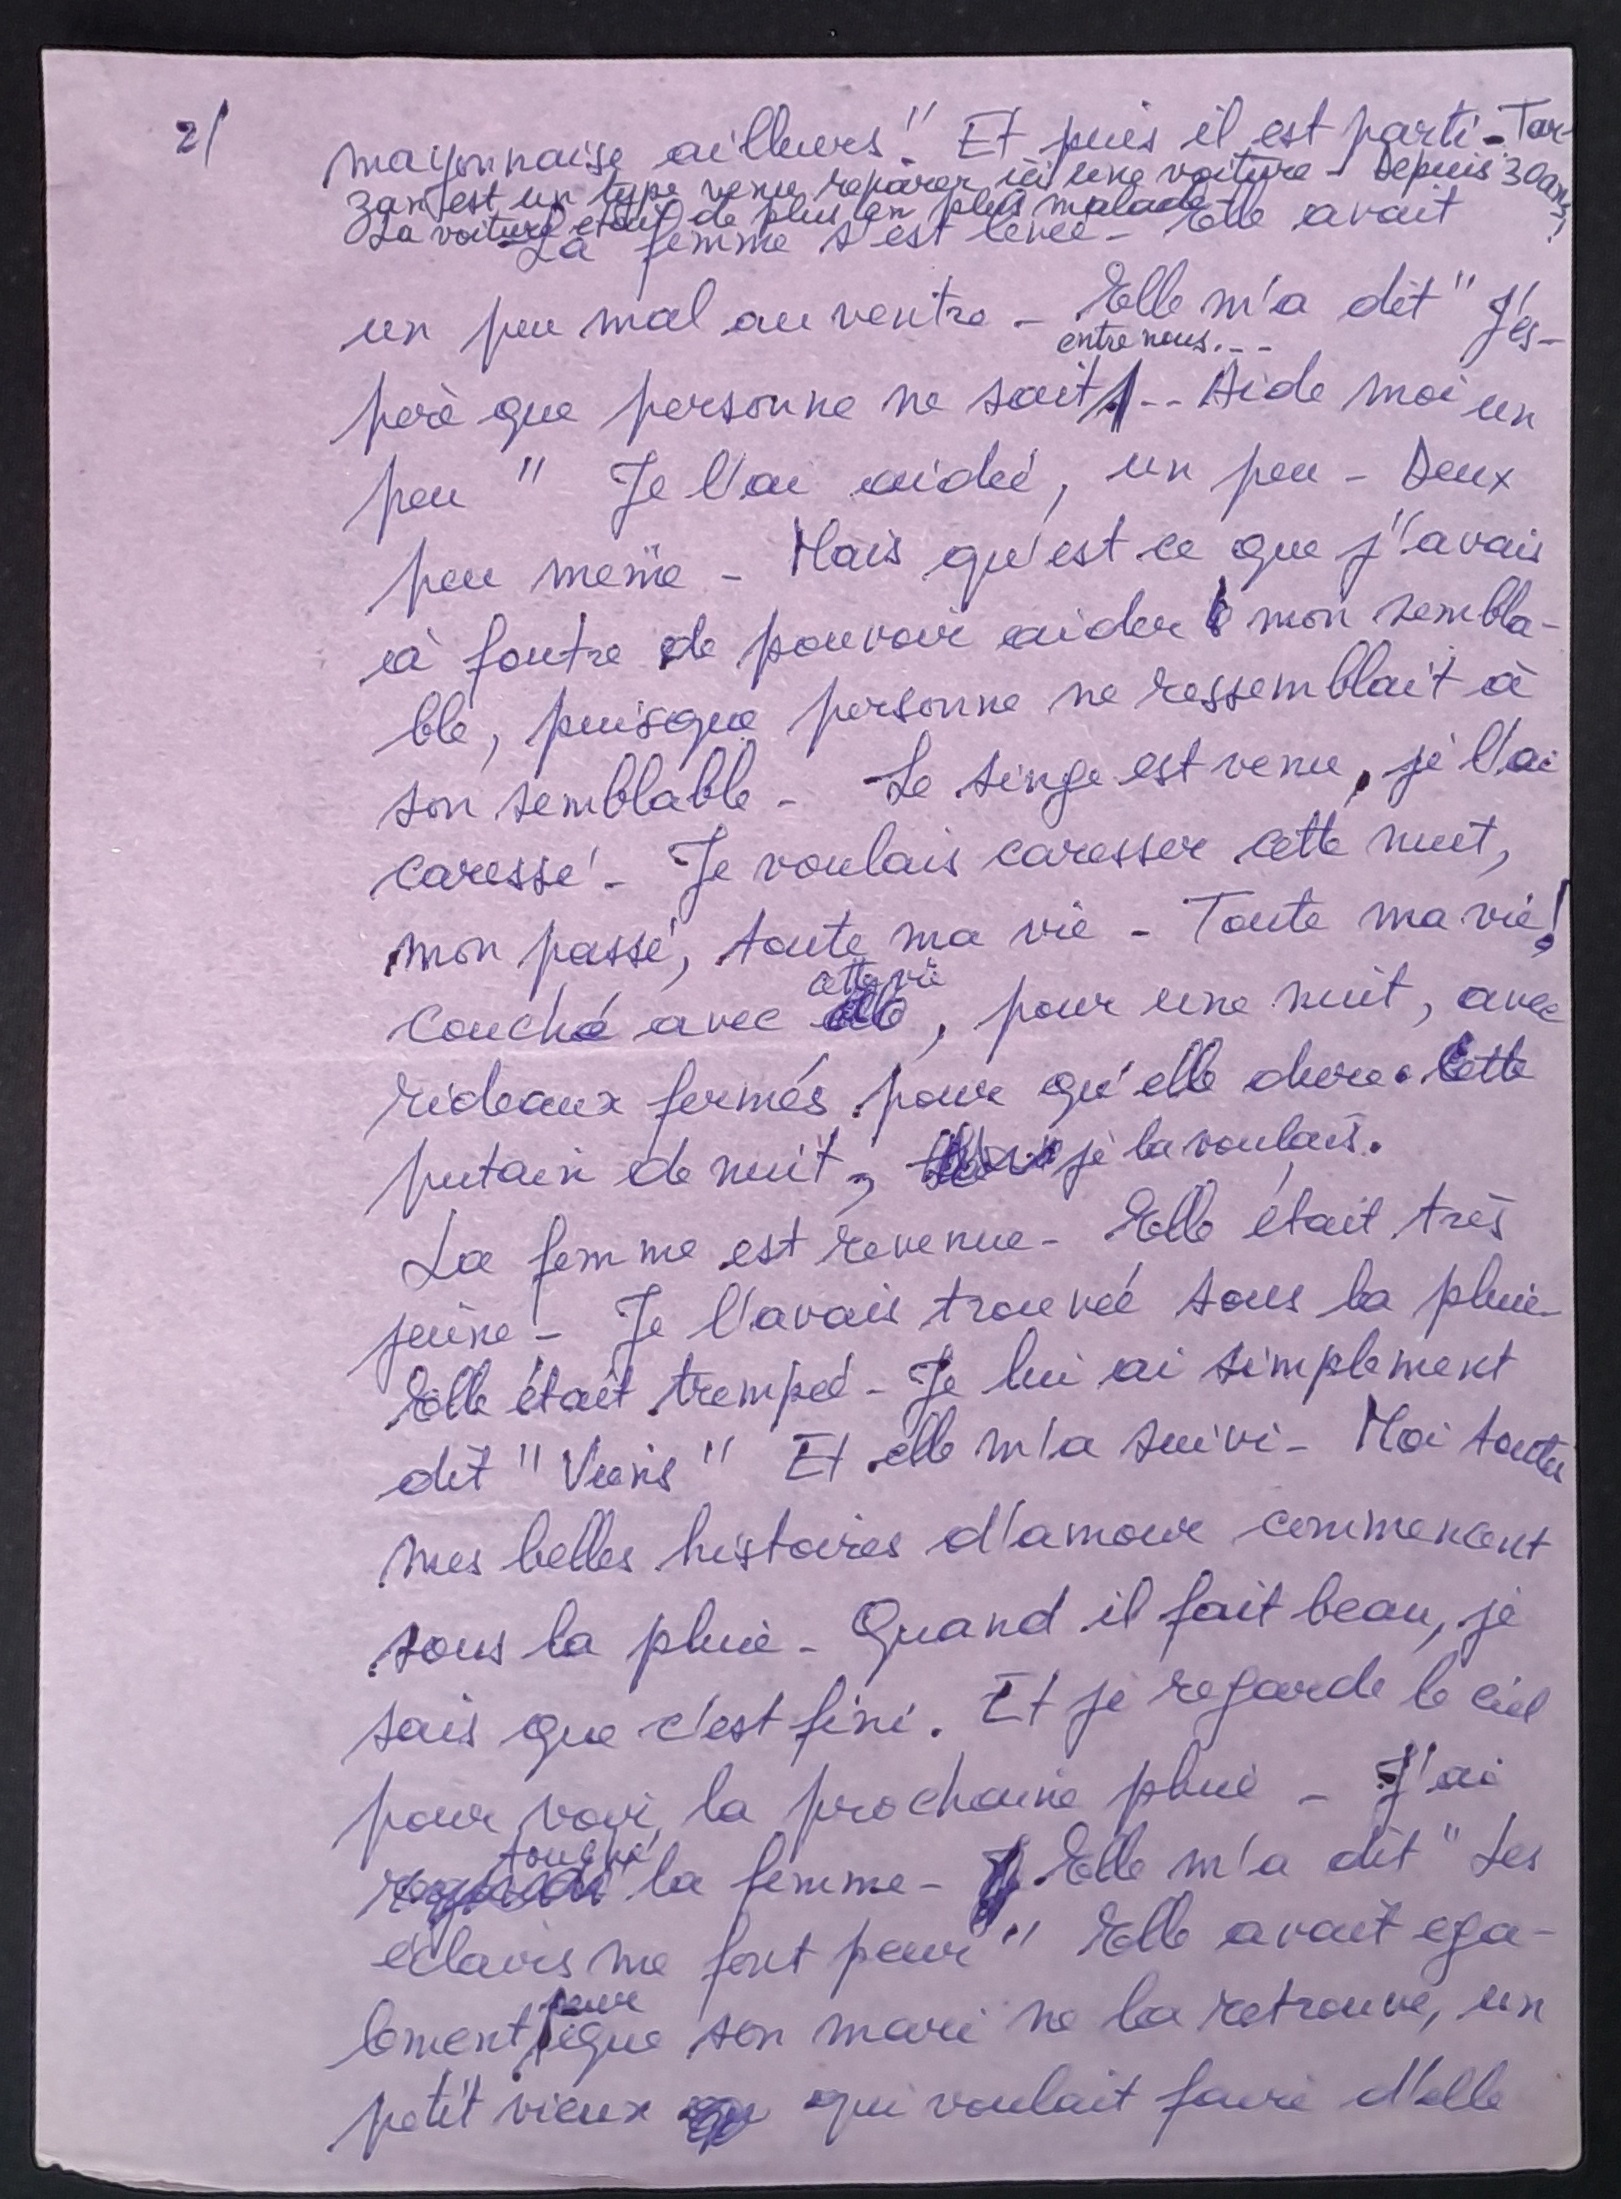 2/
mayonnaise ailleurs!" Et puis il est parti - Tar-
zan est un type venu réparer ici une voiture - Depuis 30 ans,
La voiture était de plus en plus malade -
La femme s'est levée - Elle avait
un peu mal au ventre - Elle m'a dit " J'es-
entre nous...
père que personne ne sait ... Aide moi un
peu " Je l'ai aidée, un peu - Deux
peu même - Mais qu'est ce que j'avais
à foutre de pouvoir aider mon sembla-
ble, puisque personne ne ressemblait à
son semblable - Le singe est venu, je l'ai
caressé - Je voulais caresser cette nuit,
mon passé, toute ma vie - Toute ma vie!
cette vie
couché avec elle, pour une nuit, avec
rideaux fermés pour qu'elle dure. Cette
putain de nuit, je la voulais.
La femme est revenue - Elle était très
jeune - Je l'avais trouvée sous la pluie -
Elle était trempée - Je lui ai simplement
dit " Viens " Et elle m'a suivi - Moi toutes
mes belles histoires d'amour commencent
sous la pluie - Quand il fait beau, je
sais que c'est fini. Et je regarde le ciel
pour voir la prochaine pluie - J'ai
touché
regardé la femme - Elle m'a dit " Les
éclairs me font peur " Elle avait éga-
peur
lement que son mari ne la retrouve, un
petit vieux qui voulait faire d'elle